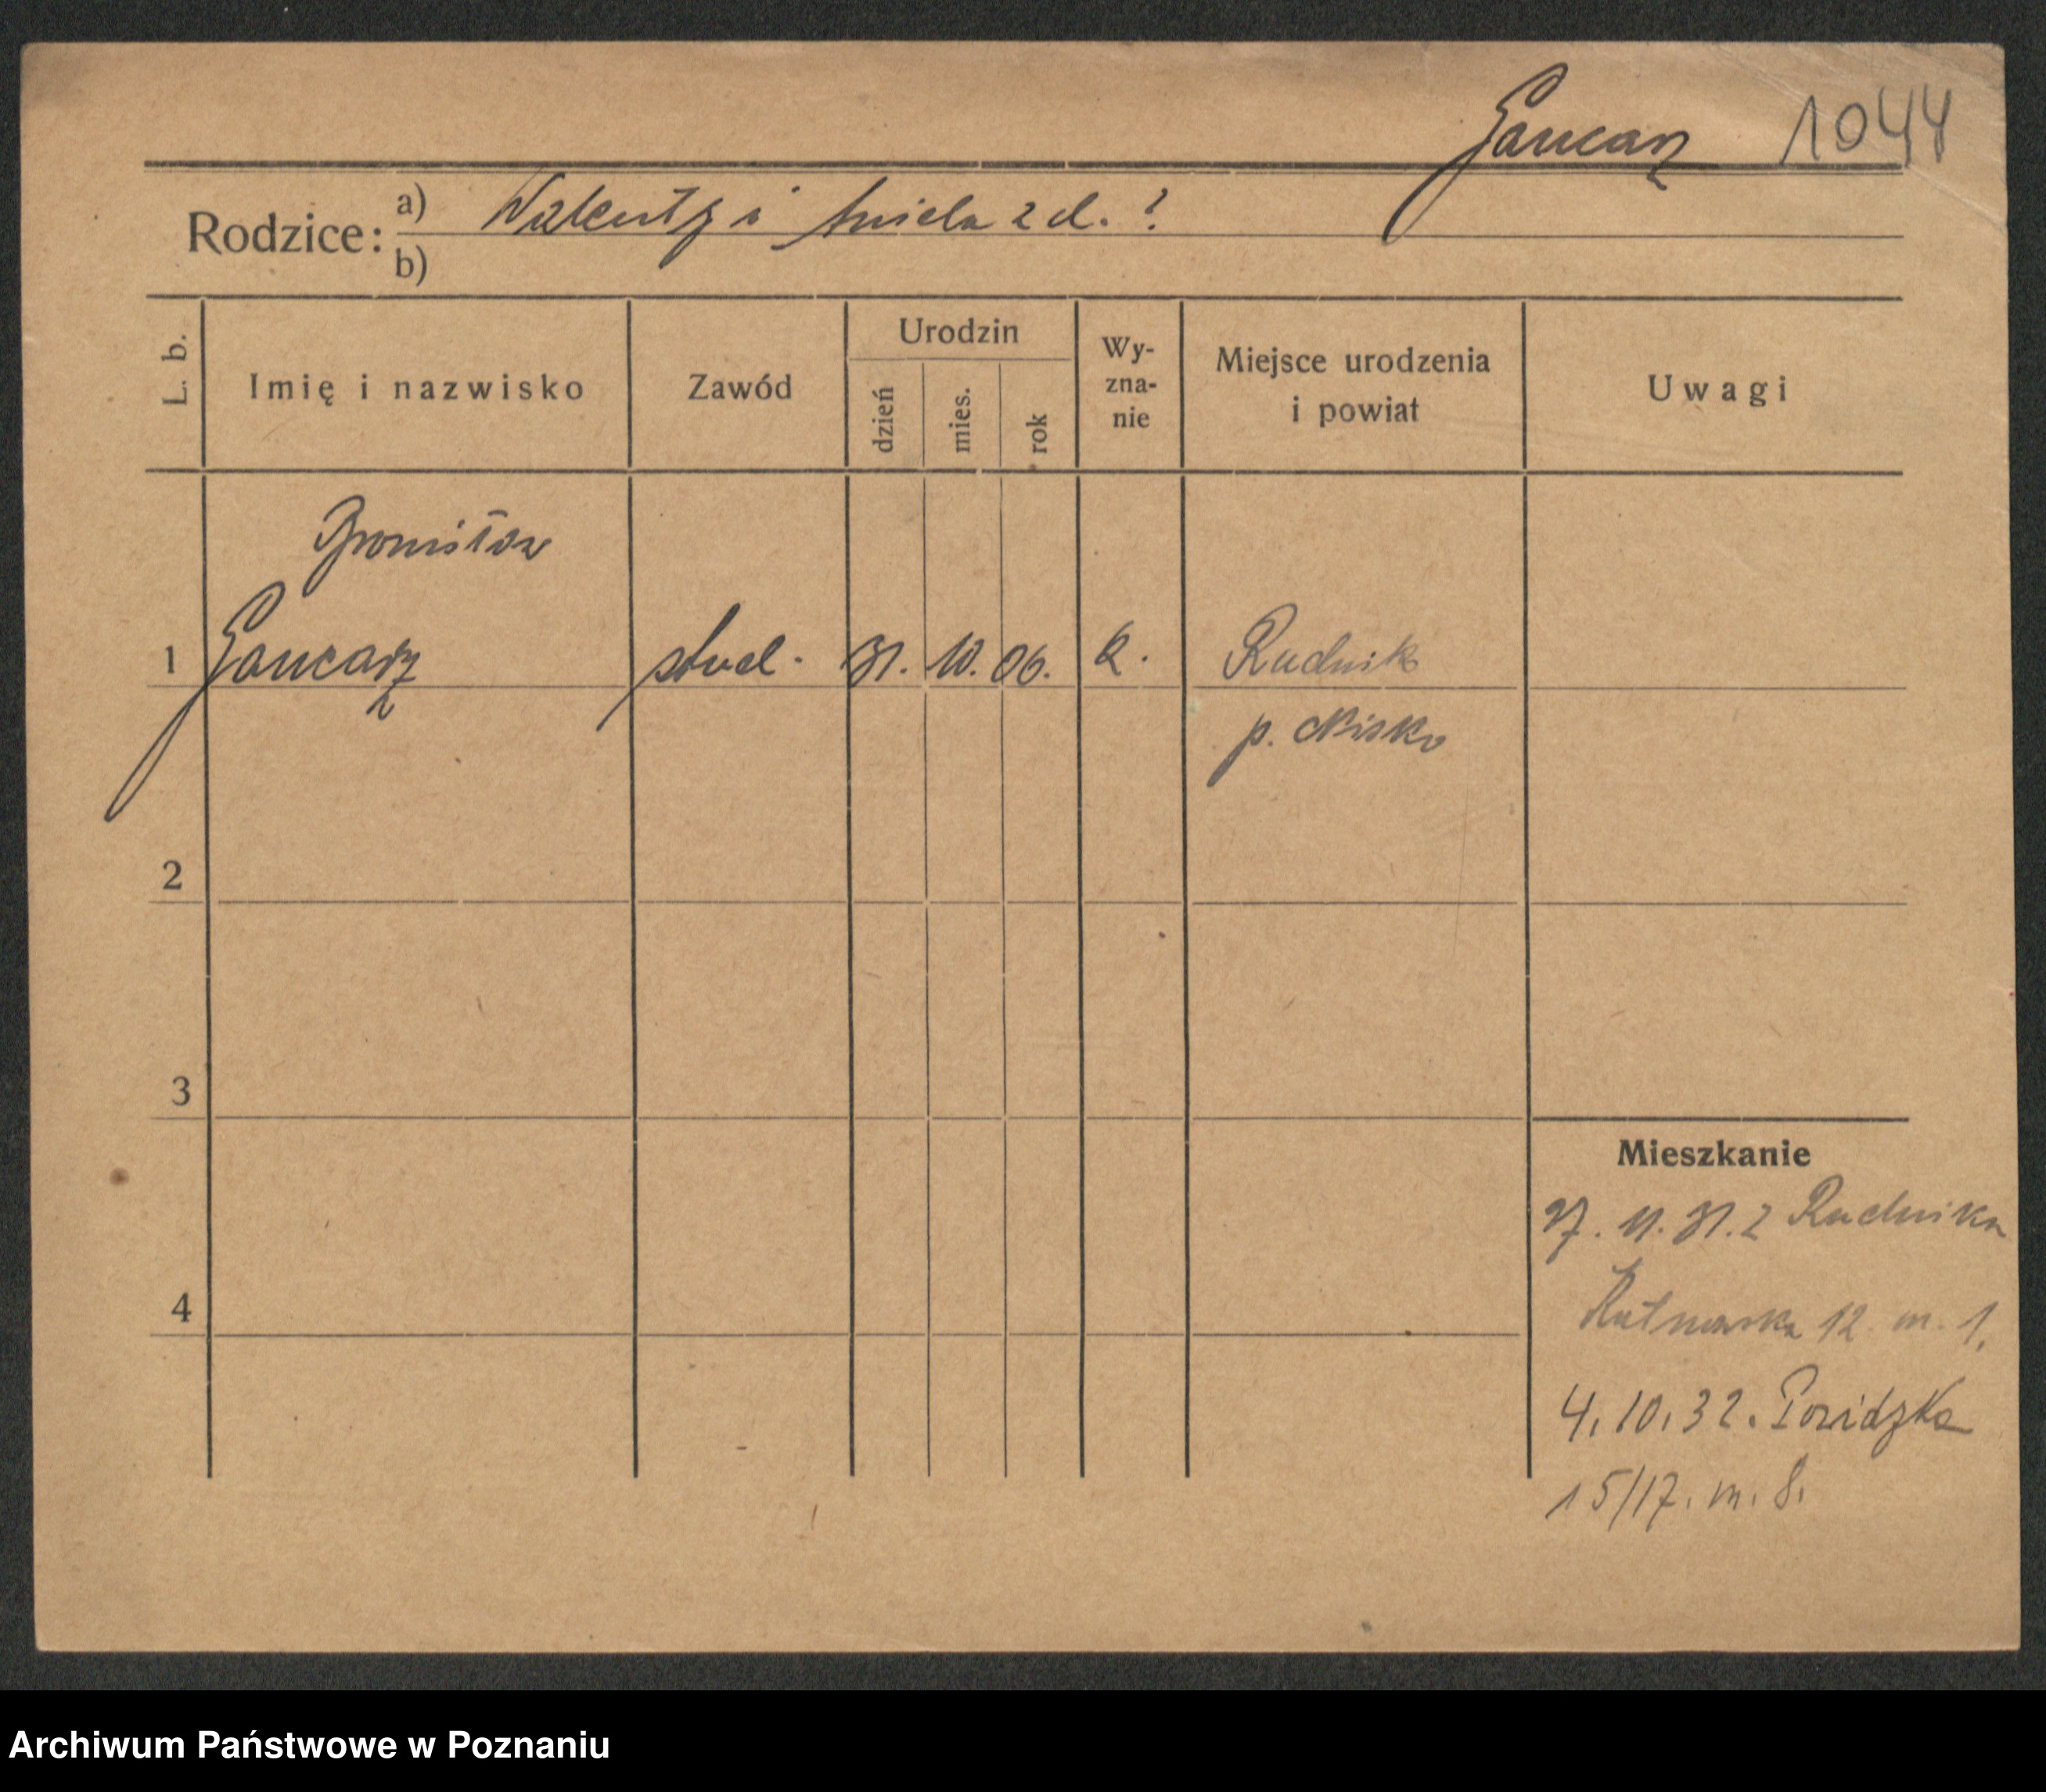 Gancarz 1044
Rodzice: a) Walenty i Aniela z d. ?
b)
L. b. Imię i nazwisko Zawód Urodzin dzień mies. rok Wy-zna-nie Miejsce urodzenia i powiat Uwagi
Bronisław
1 Gancarz stud. 31. 10. 06. k. Rudnik
p. Nisko
2
3
Mieszkanie
27. 11. 31. z Rudnika
4
Kutnowska 12 m. 1.
4. 10. 32. Powidzka
15/17. m. 8.
Archiwum Państwowe w Poznaniu